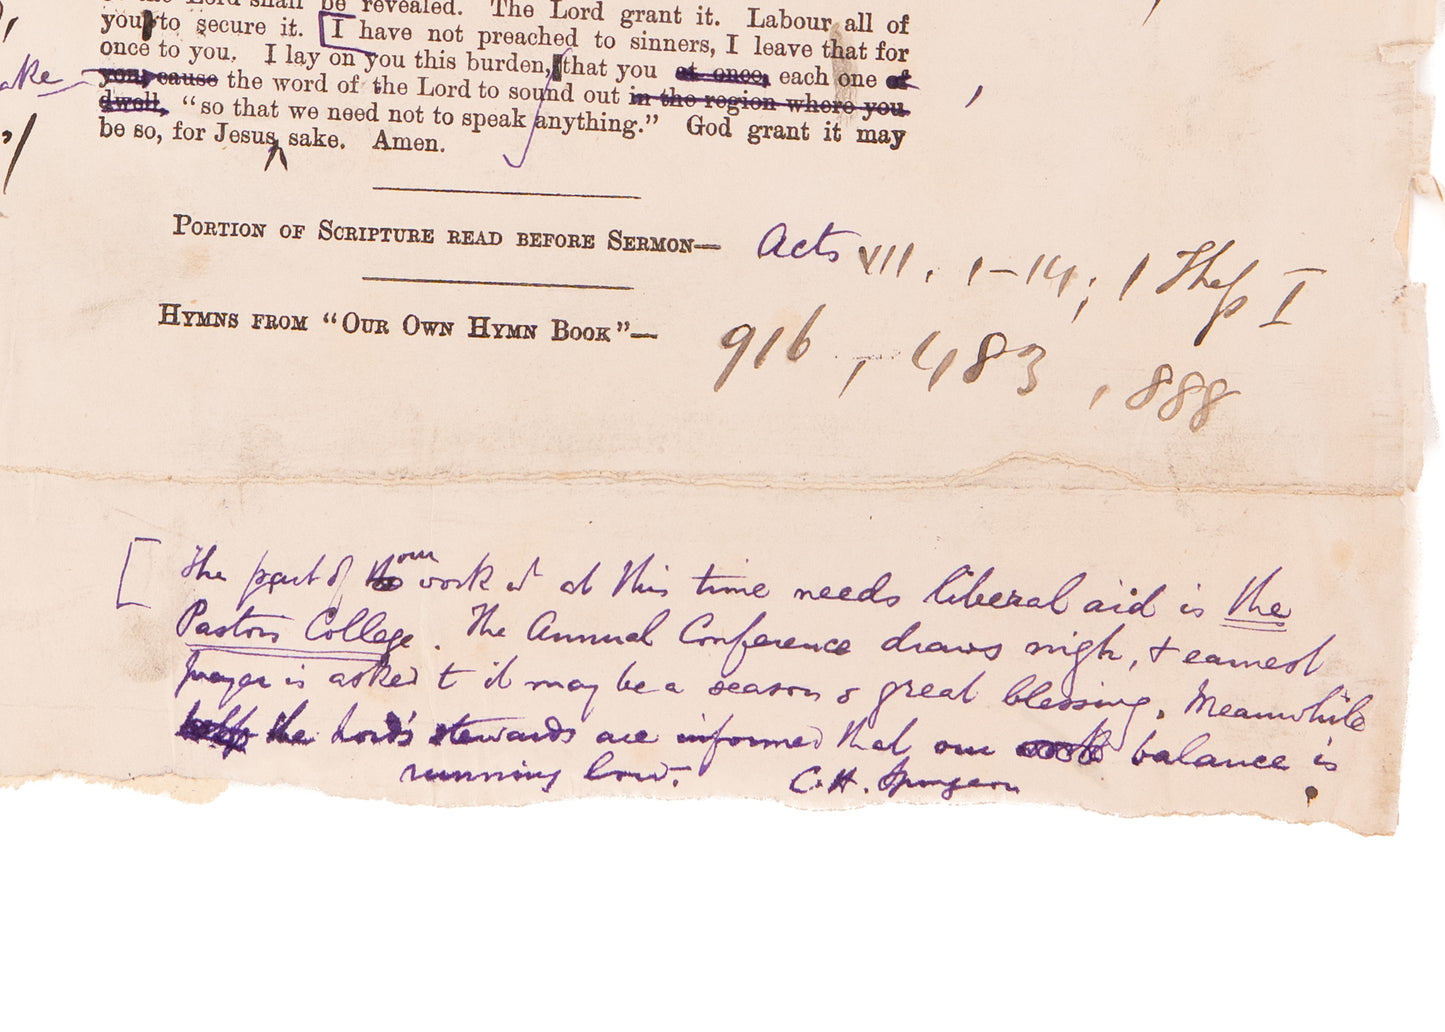 the Lord shall be revealed. The Lord grant it. Labour all of
you to secure it. I have not preached to sinners, I leave that for
once to you. I lay on you this burden, that you at once, each one of
ake
you, cause the word of the Lord to sound out in the region where you
dwell, “so that we need not to speak anything.” God grant it may
be so, for Jesus sake. Amen.
PORTION OF SCRIPTURE READ BEFORE SERMON— Acts VII, 1-14; 1 Thess I
HYMNS FROM “OUR OWN HYMN BOOK”— 916, 483, 888
[The part of our work wh at this time needs liberal aid is the
Pastors College. The Annual Conference draws nigh, & earnest
prayer is asked t it may be a season o great blessing. Meanwhile
the Lord's stewards are informed that our balance is
running low. C. H. Spurgeon